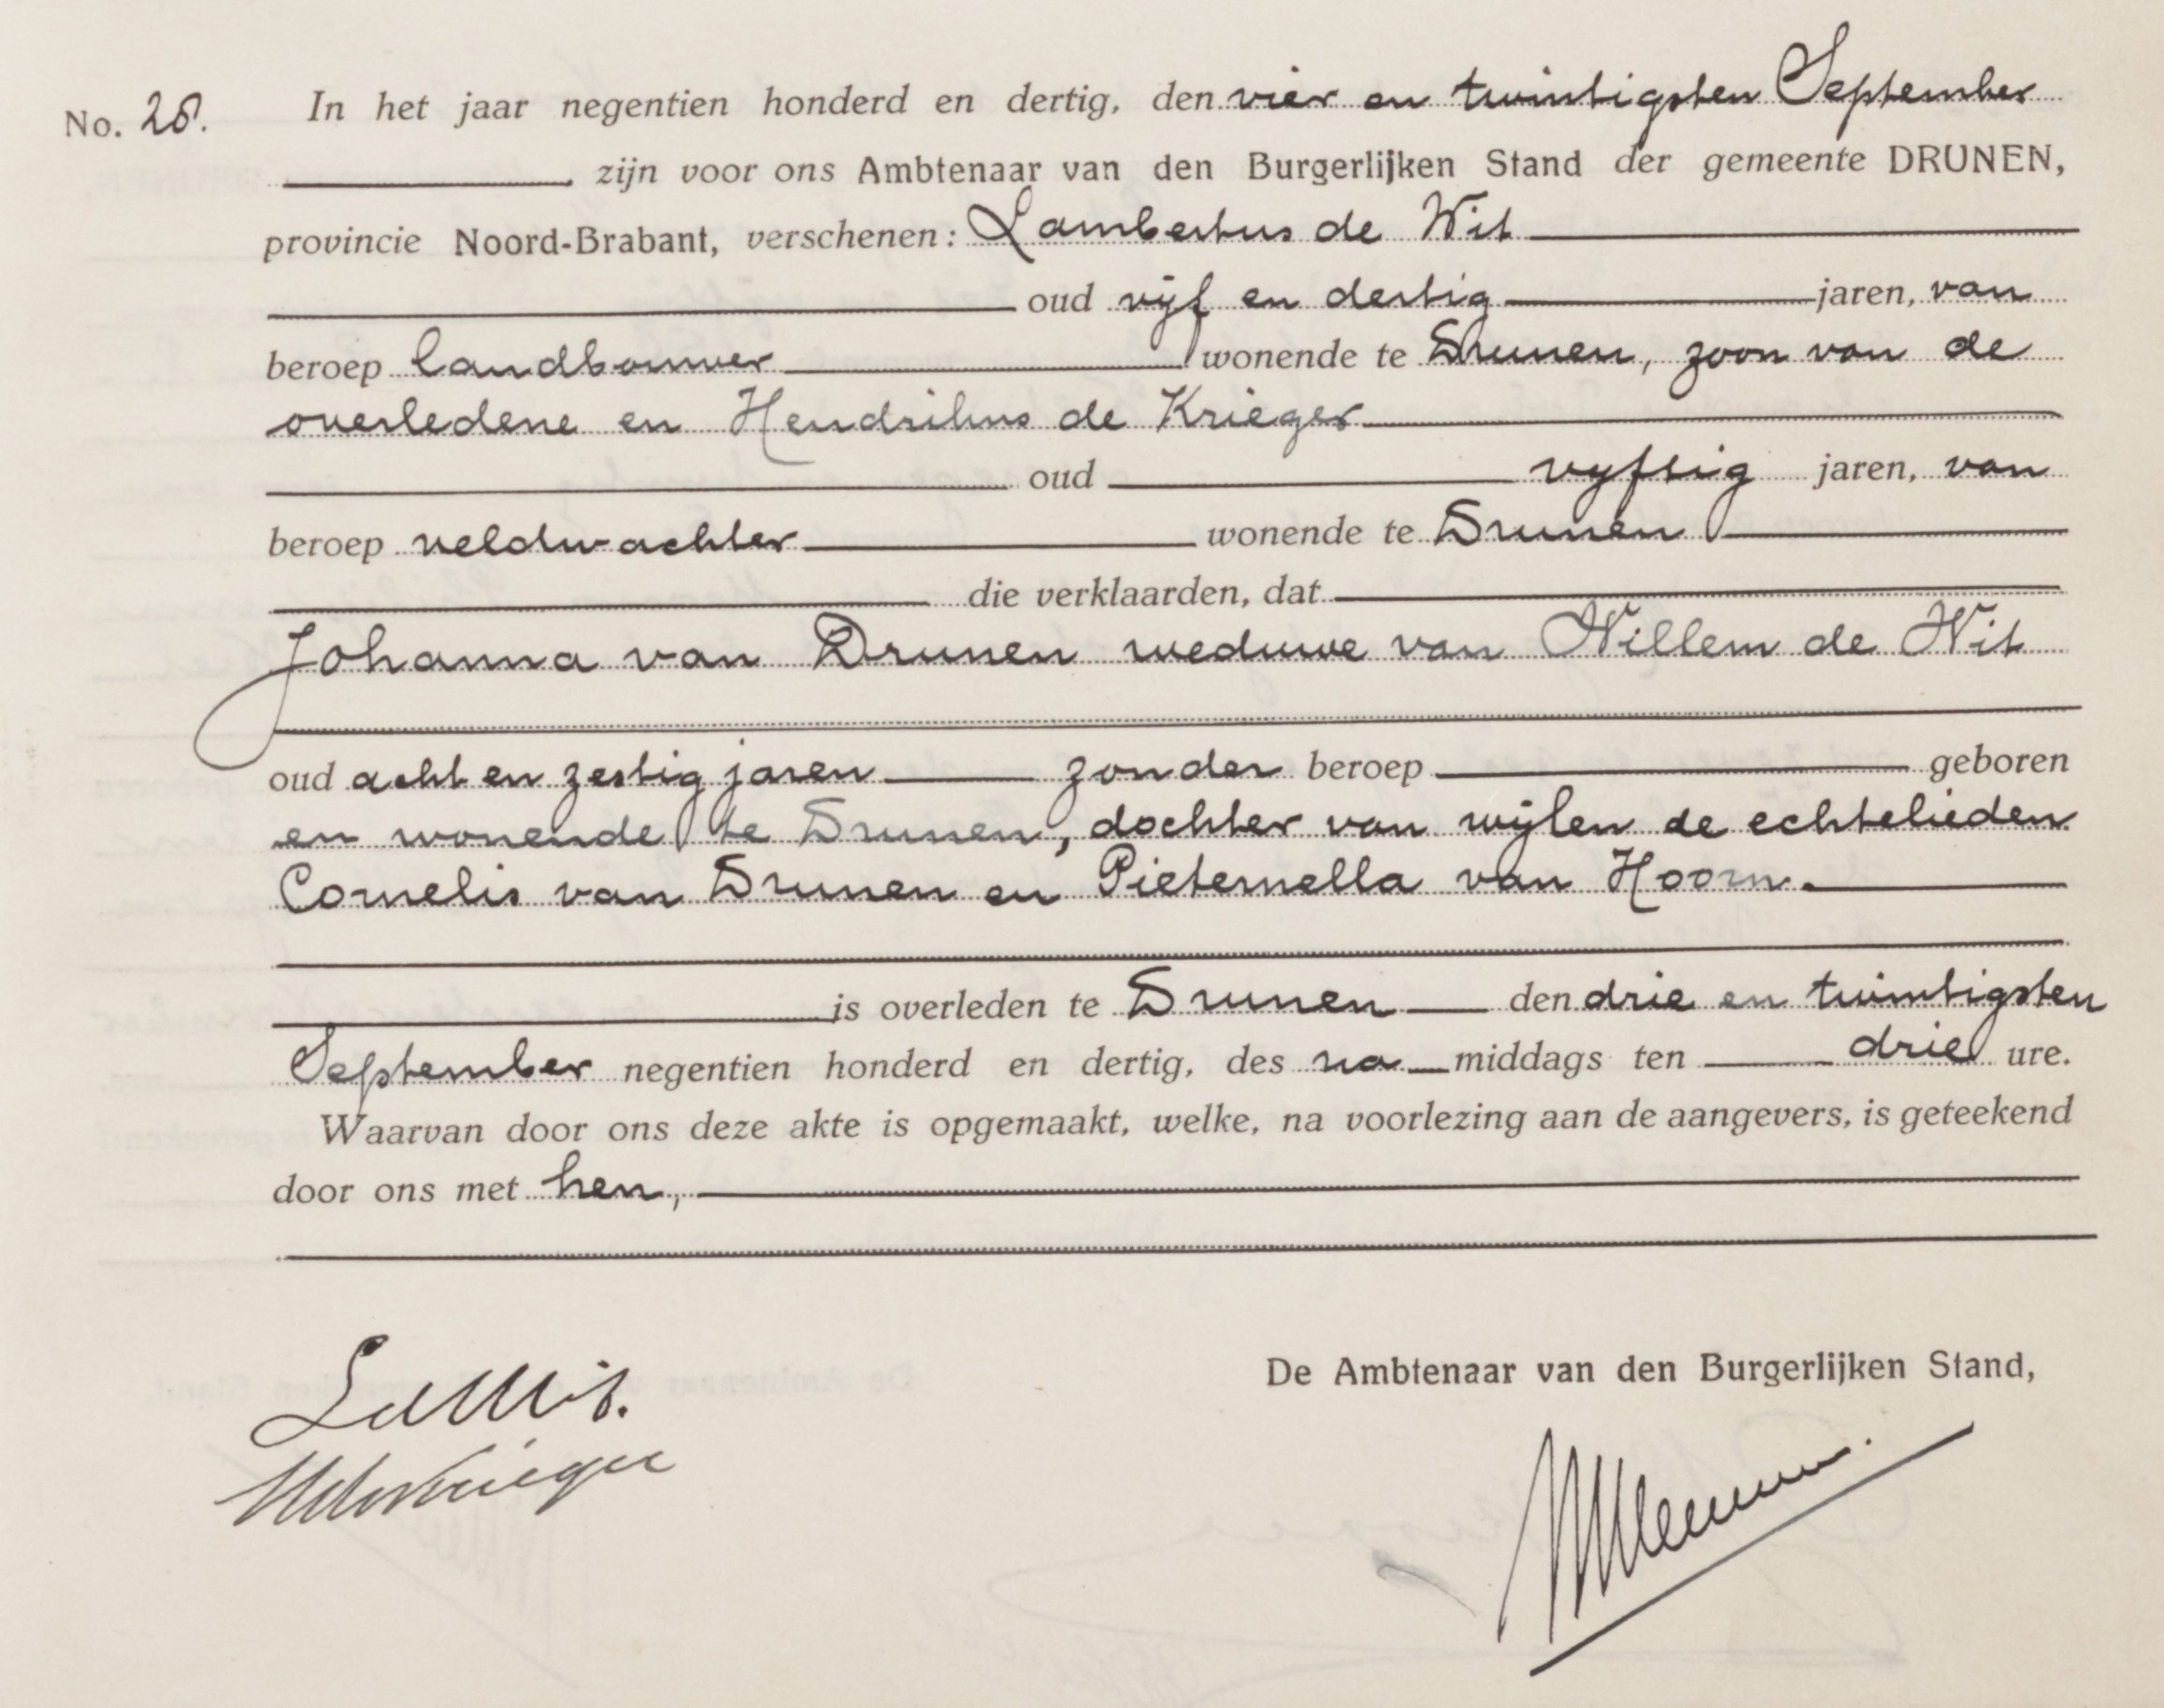 No. 28. In het jaar negentien honderd en dertig, den vier en twintigsten September
zijn voor ons Ambtenaar van den Burgerlijken Stand der gemeente DRUNEN,
provincie Noord-Brabant, verschenen: Lambertus de Wit
oud vijf en dertig jaren, van
beroep landbouwer wonende te Drunen, zoon van de
overledene en Hendrikus de Krieger
oud vyftig jaren, van
beroep veldwachter wonende te Drunen
die verklaarden, dat
Johanna van Drunen weduwe van Willem de Wit
oud acht en zestig jaren zonder beroep geboren
en wonende te Drunen, dochter van wijlen de echtelieden
Cornelis van Drunen en Pieternella van Hoorn.
is overleden te Drunen den drie en twintigsten
September negentien honderd en dertig, des na middags ten drie ure.
Waarvan door ons deze akte is opgemaakt, welke, na voorlezing aan de aangevers, is geteekend
door ons met hen,
De Ambtenaar van den Burgerlijken Stand,
L d Wit.
H de Krieger